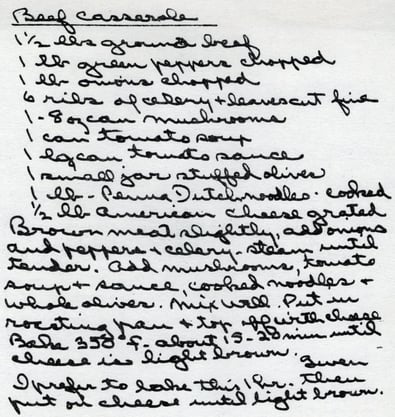 Beef Casserole
1 1/2 lbs ground beef
1 lb green peppers chopped
1 lb onions chopped
6 ribs of celery + leaves cut fine
1 - 8 oz can mushrooms
1 can tomato soup
1 lg can tomato sauce
1 small jar stuffed olives
1 lb - Penna Dutch noodles - cooked
1/2 lb American cheese grated
Brown meat slightly, add onions
and peppers + celery. steam until
tender. Add mushrooms, tomato
soup + sauce, cooked noodles +
whole olives. Mix well. Put in
roasting pan + top off with cheese
Bake 350 F. about 15-20 min until
cheese is light brown.
I prefer to bake this 1 hr. then
put on cheese until light brown.